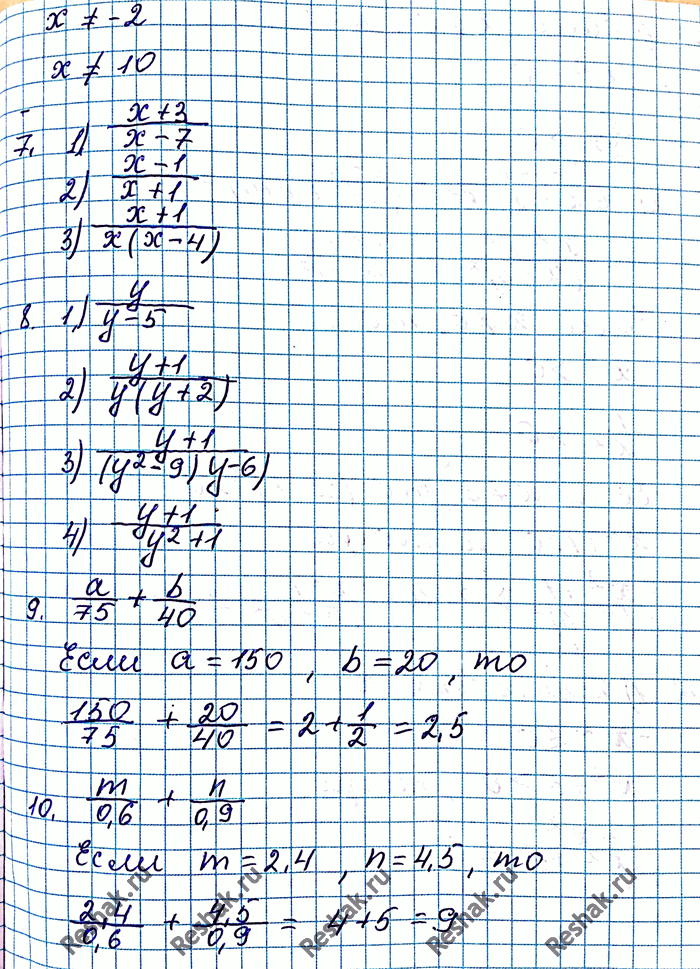 x ≠ -2
x ≠ 10
7. 1) (x+3)/(x-7)
2) (x-1)/(x+1)
3) (x+1)/(x(x-4))
8. 1) y/(y-5)
2) (y+1)/(y(y+2))
3) (y+1)/((y²-9)y-6)
4) (y+1)/(y²+1)
9. a/75 + b/40
Если a = 150, b = 20, то
150/75 + 20/40 = 2 + 1/2 = 2,5
10. m/0,6 + n/0,9
Если m = 2,4, n = 4,5, то
2,4/0,6 + 4,5/0,9 = 4 + 5 = 9
Reshak.ru Reshak.ru Reshak.ru Reshak.ru Reshak.ru